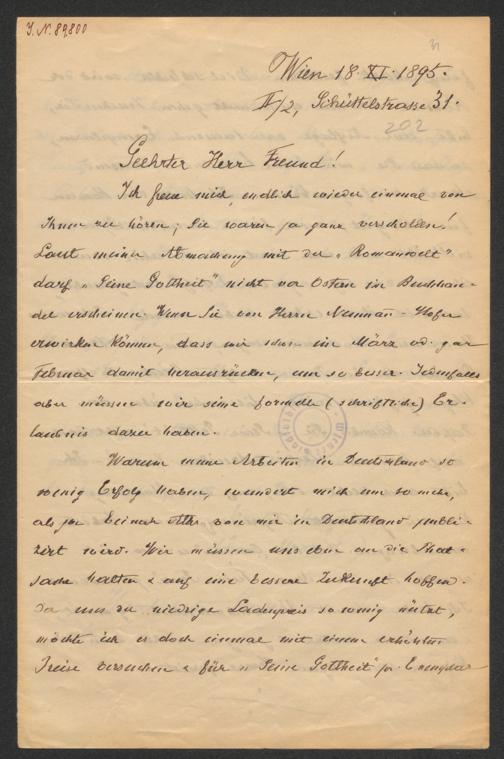 J. N. 89800
31
Wien 18. XI. 1895.
II/2, Schüttelstrasse 31.
202
Geehrter Herr Freund!
Ich freue mich, endlich wieder einmal von
Ihnen zu hören; Sie waren ja ganz verschollen!
Laut meiner Abmachung mit der „Romanwelt"
darf „Seine Gottheit" nicht vor Ostern in Buchhan-
del erscheinen. Wenn Sie von Herrn Neumann-Hofer
erwirken können, dass wir schon im März od. gar
Februar damit herausrücken, um so besser. Jedenfalls
aber müssen wir seine formelle (schriftliche) Er-
laubnis dazu haben.
Warum meine Arbeiten in Deutschland so
wenig Erfolg haben, wundert mich um so mehr,
als ja beinah Alles von mir in Deutschland publi-
zirt wird. Wir müssen uns eben an die That-
sache halten & auf eine bessere Zukunft hoffen.
Da uns der niedrige Ladenpreis so wenig nützt,
möchte ich es doch einmal mit einem erhöhten
Preise versuchen & für „Seine Gottheit" pr. Exemplar